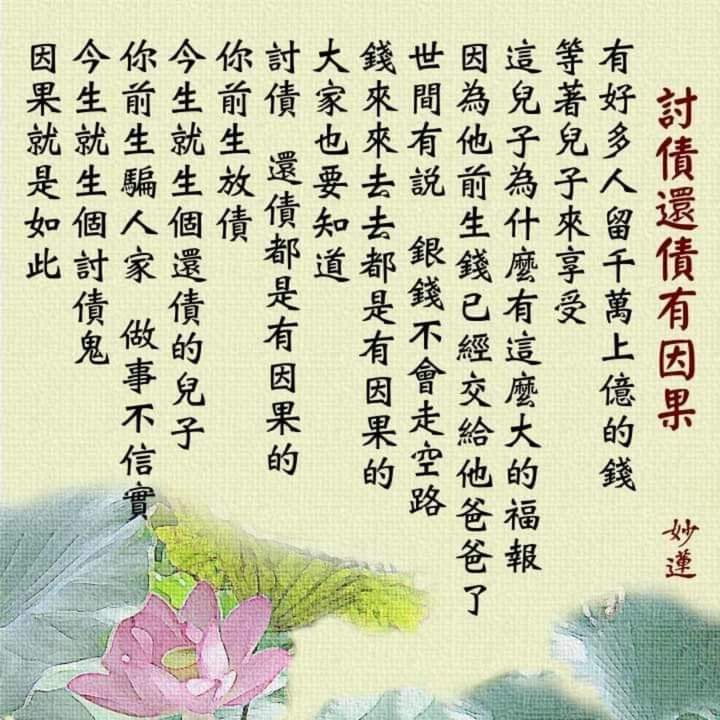 討債還債有因果
妙蓮
有好多人留千萬上億的錢
等著兒子來享受
這兒子為什麼有這麼大的福報
因為他前生錢已經交給他爸爸了
世間有説 銀錢不會走空路
錢來來去去都是有因果的
大家也要知道
討債 還債都是有因果的
你前生放債
今生就生個還債的兒子
你前生騙人家 做事不信實
今生就生個討債鬼
因果就是如此